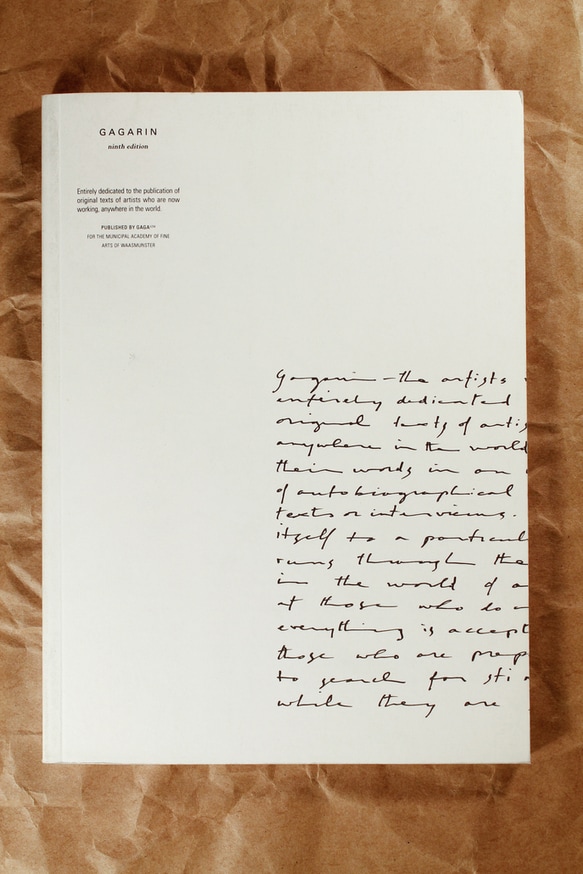 GAGARIN
ninth edition
Entirely dedicated to the publication of
original texts of artists who are now
working, anywhere in the world.
PUBLISHED BY GAGA
FOR THE MUNICIPAL ACADEMY OF FINE
ARTS OF WAASMUNSTER
Gagarin - the artists
entirely dedicated
original texts of artis
anywhere in the world
their words in an
of autobiographical
texts or interviews.
itself to a particul
runs through the
in the world of a
at those who do
everything is accept
those who are prep
to search for sti
while they are